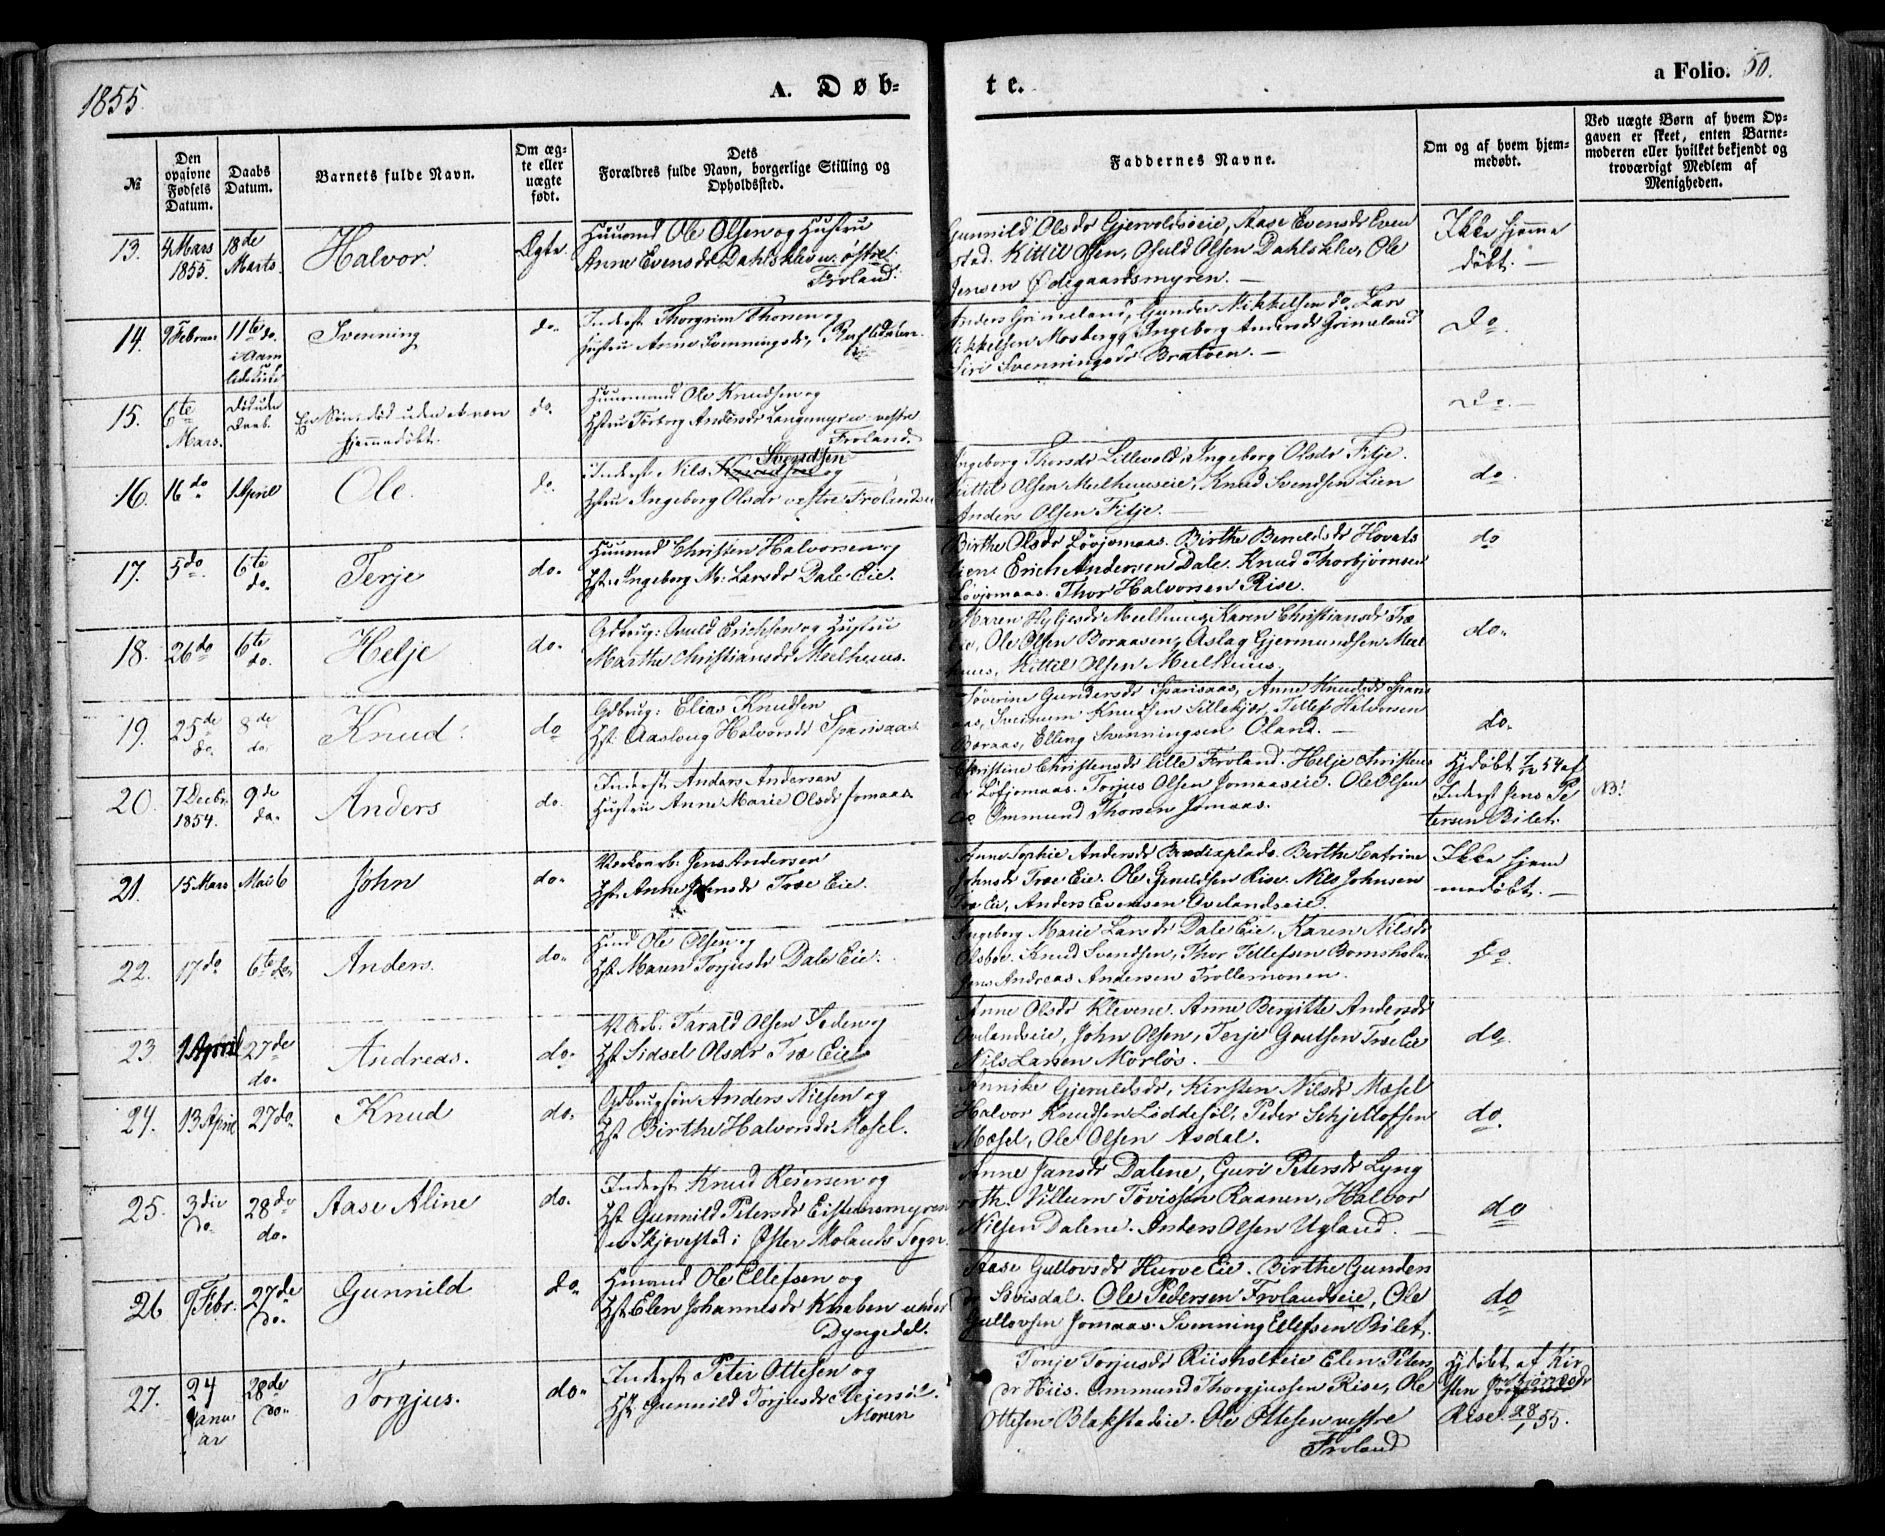 1855.
A. Døb-
te.
a Folio. 50.
№
Den opgivne Fødsels Datum.
Daabs Datum.
Barnets fulde Navn.
Om ægte eller uægte født.
Dets Forældres fulde Navn, borgerlige Stilling og Opholdssted.
Faddernes Navne.
Om og af hvem hjemmedøbt.
Ved uægte Børn af hvem Opgaven er skeet, enten Barnemoderen eller hvilket bekjendt og troværdigt Medlem af Menigheden.
13.
4 Mars
1855.
18de
Marts.
Halvor.
Ægte
Huusmd Ole Olsen og Hustru
Anne Evensdr Dahlsklev u. østre
Froland.
Gunnild Olsdr Gjervoldsøeie, Aase Evensdr Even
stad. Kittil Olsen, Osuld Olsen Dahlsklev, Ole
Jensen Ødegaardsmyren. —
Ikke hjemme
døbt. —
14.
9 Februar
11te do.
i Aam
lid
Svenning
do.
Inderst Thorgrim Thorsen og
Hustru Anne Svenningsdr,
Anders Grimeland, Gunder Mikkelsen do, Lars
Mikkelsen Mosberg, Ingeborg Andersdr Grimeland
Siri Svenningsdr Bratven. —
Do.
15.
6te
Mars.
Død uden
Daab.
En Søn, død uden at være
hjemmedøbt.
do.
Huusmand Ole Knudsen og
Hstru Torborg Andersdr Langemyr u. vestre
Froland.
Do. —
16.
16 do
1 April
Ole.
do.
Inderst Nils Svendsen og
Hstru Ingeborg Olsdr vestre Frolands
Ingeborg Thorsdr Lillevold, Ingeborg Olsdr Fitje.
Kittil Olsen Meelhuuseie, Knud Svendsen Lien
Anders Olsen Fitje. —
do
17.
5 do.
6te
do.
Terje
do.
Huusmd Christen Halvorsen og
Hst. Ingeborg M: Larsdr Dale Eie.
Birthe Olsdr Løvjomaas. Birthe Beruldsdr Hovats
lien. Erich Andersen Dale. Knud Thorbjørnsen
Løvjomaas. Thor Halvorsen Rise.
do
18.
26 do
6te
do.
Helje
do.
Gdbrug: Osuld Erichsen og Hustru
Marthe Christiansdr Meelhuus.
Maren Helgesdr Meelhuus, Karen Christiansdr Træ
Eie, Ole Olsen Boraasen, Aslag Gjermundsen Meel
huus, Kittil Olsen Meelhuus.
do.
19.
25de
do.
8de
do.
Knud.
do
Gdbrug: Elias Knudsen
Hst. Aaslaug Halvorsdr Sparisaas.
Søverine Gundersdr Sparisaas, Anne Knudsdr Spans
aas, Sveinum Knudsen Sellekjær, Tellef Halvorsen
Boraas, Elling Svenningsen Oland. —
do.
20.
7 Decbr.
1854.
9de
do.
Anders
do.
Inderst Anders Andersen
Hustru Anne Marie Olsdr Jomaas.
Christine Christensdr lille Froland. Helje Christens
dr Løfjomaas. Torjus Olsen Jomaaseie. Ole Olsen
do. Ommund Thorsen Jomaas.
Hjdøbt 7/12 54 af
Inderst Jens Pe
tersen Bilet.
NB!
21.
15 Mars
Mai 6
John
do.
Værksarb: Jens Andersen
Hst. Anne Johnsdr Træ Eie.
Anne Sophie Andersdr Bendixplads. Birthe Catrine
Johnsdr Træ Eie. Ole Gjeruldsen Rise. Nils Johnsen
Træ Eie, Anders Evensen Ovelandseie.
Ikke hjem
medøbt. —
22.
17 do
6te do.
Anders.
do.
Hmd Ole Olsen og
Hst. Maren Torjusdr Dale Eie.
Ingeborg Marie Larsdr Dale Eie. Karen Nilsdr
Olsboe. Knud Svendsen, Thor Tellefsen Bomsholm
Jens Andreas Andersen Trollemonen.
Do
23.
1 April
27de
do.
Andreas.
do.
V. Arb. Tarald Olsen Seden og
Hst. Sidsel Olsdr Træ Eie
Anne Olsdr Klevene. Anne Bergitte Andersdr
Ovelandseie, John Olsen, Terje Goutsen Træ Eie
Nils Larsen Mørløs. —
do.
24.
13 April
27 do.
Knud
do.
Gdbrugsøn Anders Nilsen og
Hst. Birthe Halvorsdr Mæsel.
Annike Gjeruldsdr, Kirsten Nilsdr Mæsel
Halvor Knudsen Løddesøl, Peder Schjelloffsen
Mæsel, Ole Olsen Asdal.
do.
25.
3die
Do.
28 do
do.
Aase Aline
do.
Inderst Knud Reiersen og
Hst Gunnild Petersdr Eistensmyren
u Skjovestad i Øster Molands Sogn
Anne Jansdr Dalene, Guri Petersdr Lyng
roth. Villum Tøvissen Raanen, Halvor
Nilsen Dalene. Anders Olsen Ugland. —
do
26
9 Febr.
27de
Do.
Gunnild
do.
Hmand Ole Ellefsen og
Hst. Elen Johannesdr Knaben under
Dyngedal.
Aase Gullovsdr Hurve Eie. Birthe Gunders
dr Bøisdal. Ole Pedersen Frolandseie, Ole
Gullovsen Jomaas. Svenning Ellefsen Bilet.
do
27.
24
Janu
ar
28de
Do.
Torgjus.
do.
Inderst Peter Ottesen og
Hst. Gunnild Torjusdr Mejersøl.
Moren
Tonje Torjusdr Riisholteie Elen Peters
dr Hiis. Ommund Thorgjussen Rise, Ole
Ottesen Blakstadeie. Ole Ottesen vestre
Froland
Hjdøbt af Kir
sten Bjørnsdr
Rise. 28/1 55.